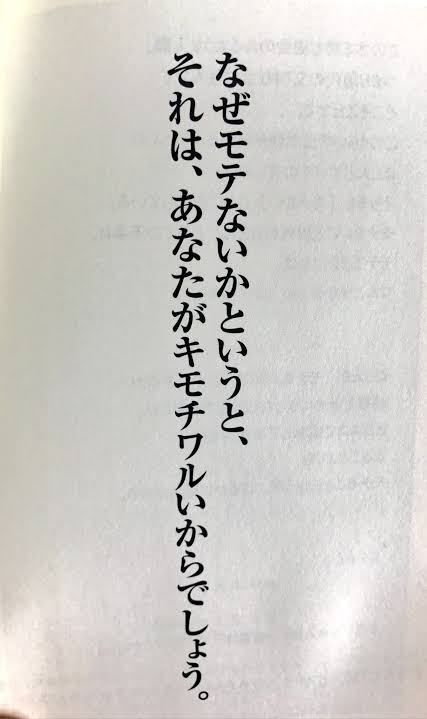 なぜモテないかというと、
それは、あなたがキモチワルいからでしょう。